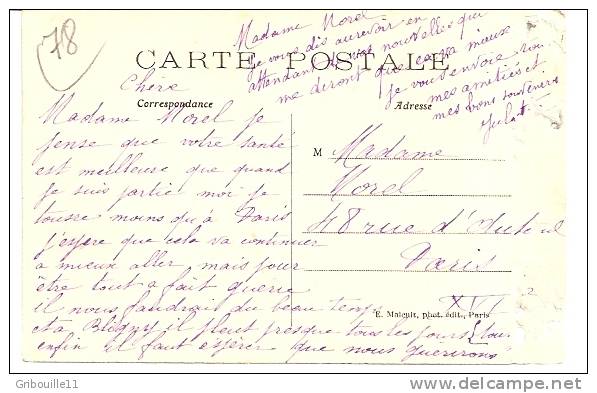 78
CARTE POSTALE
Correspondance
Adresse
Chère
Madame Morel je
pense que votre santé
est meilleure que quand
je suis partie moi je
tousse moins qu'à Paris
j'espère que cela va continuer
à mieux aller mais pour
être tout à fait guerie
il nous faudrait du beau temps
et a Bligny il pleut presque tous les jours
enfin il faut espérer que nous guerirons
Madame Morel
je vous dis aurevoir en
attendant de vos nouvelles qui
me diront que ca va mieux
je vous envoie
mes amitiés et
mes bons souvenirs
M Madame
Morel
48 rue d'Auteuil
Paris
XVI
E. Malcuit, phot. édit., Paris
Gribouille11
http://www.delcampe.net